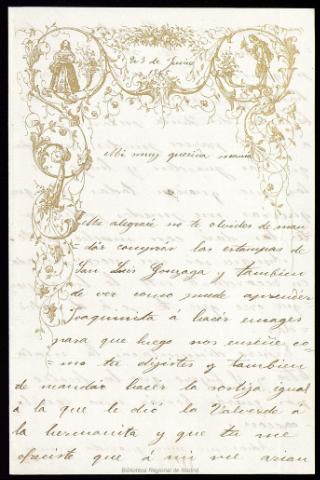 23 de Junio
Mi muy querida mamá
Me alegraré no te olvides de man
=dar comprar las estampas de
San Luis Gonzaga y tambien
de ver como puede aprender
Joaquinita á hacer
para que luego nos enseñe co
=mo tu dijistes y tambien
de mandar hacer la sortija igual
á la que le dió la Valverde á
la hermanita y que tu me
ofreciste que á mi me
Biblioteca Regional de Madrid